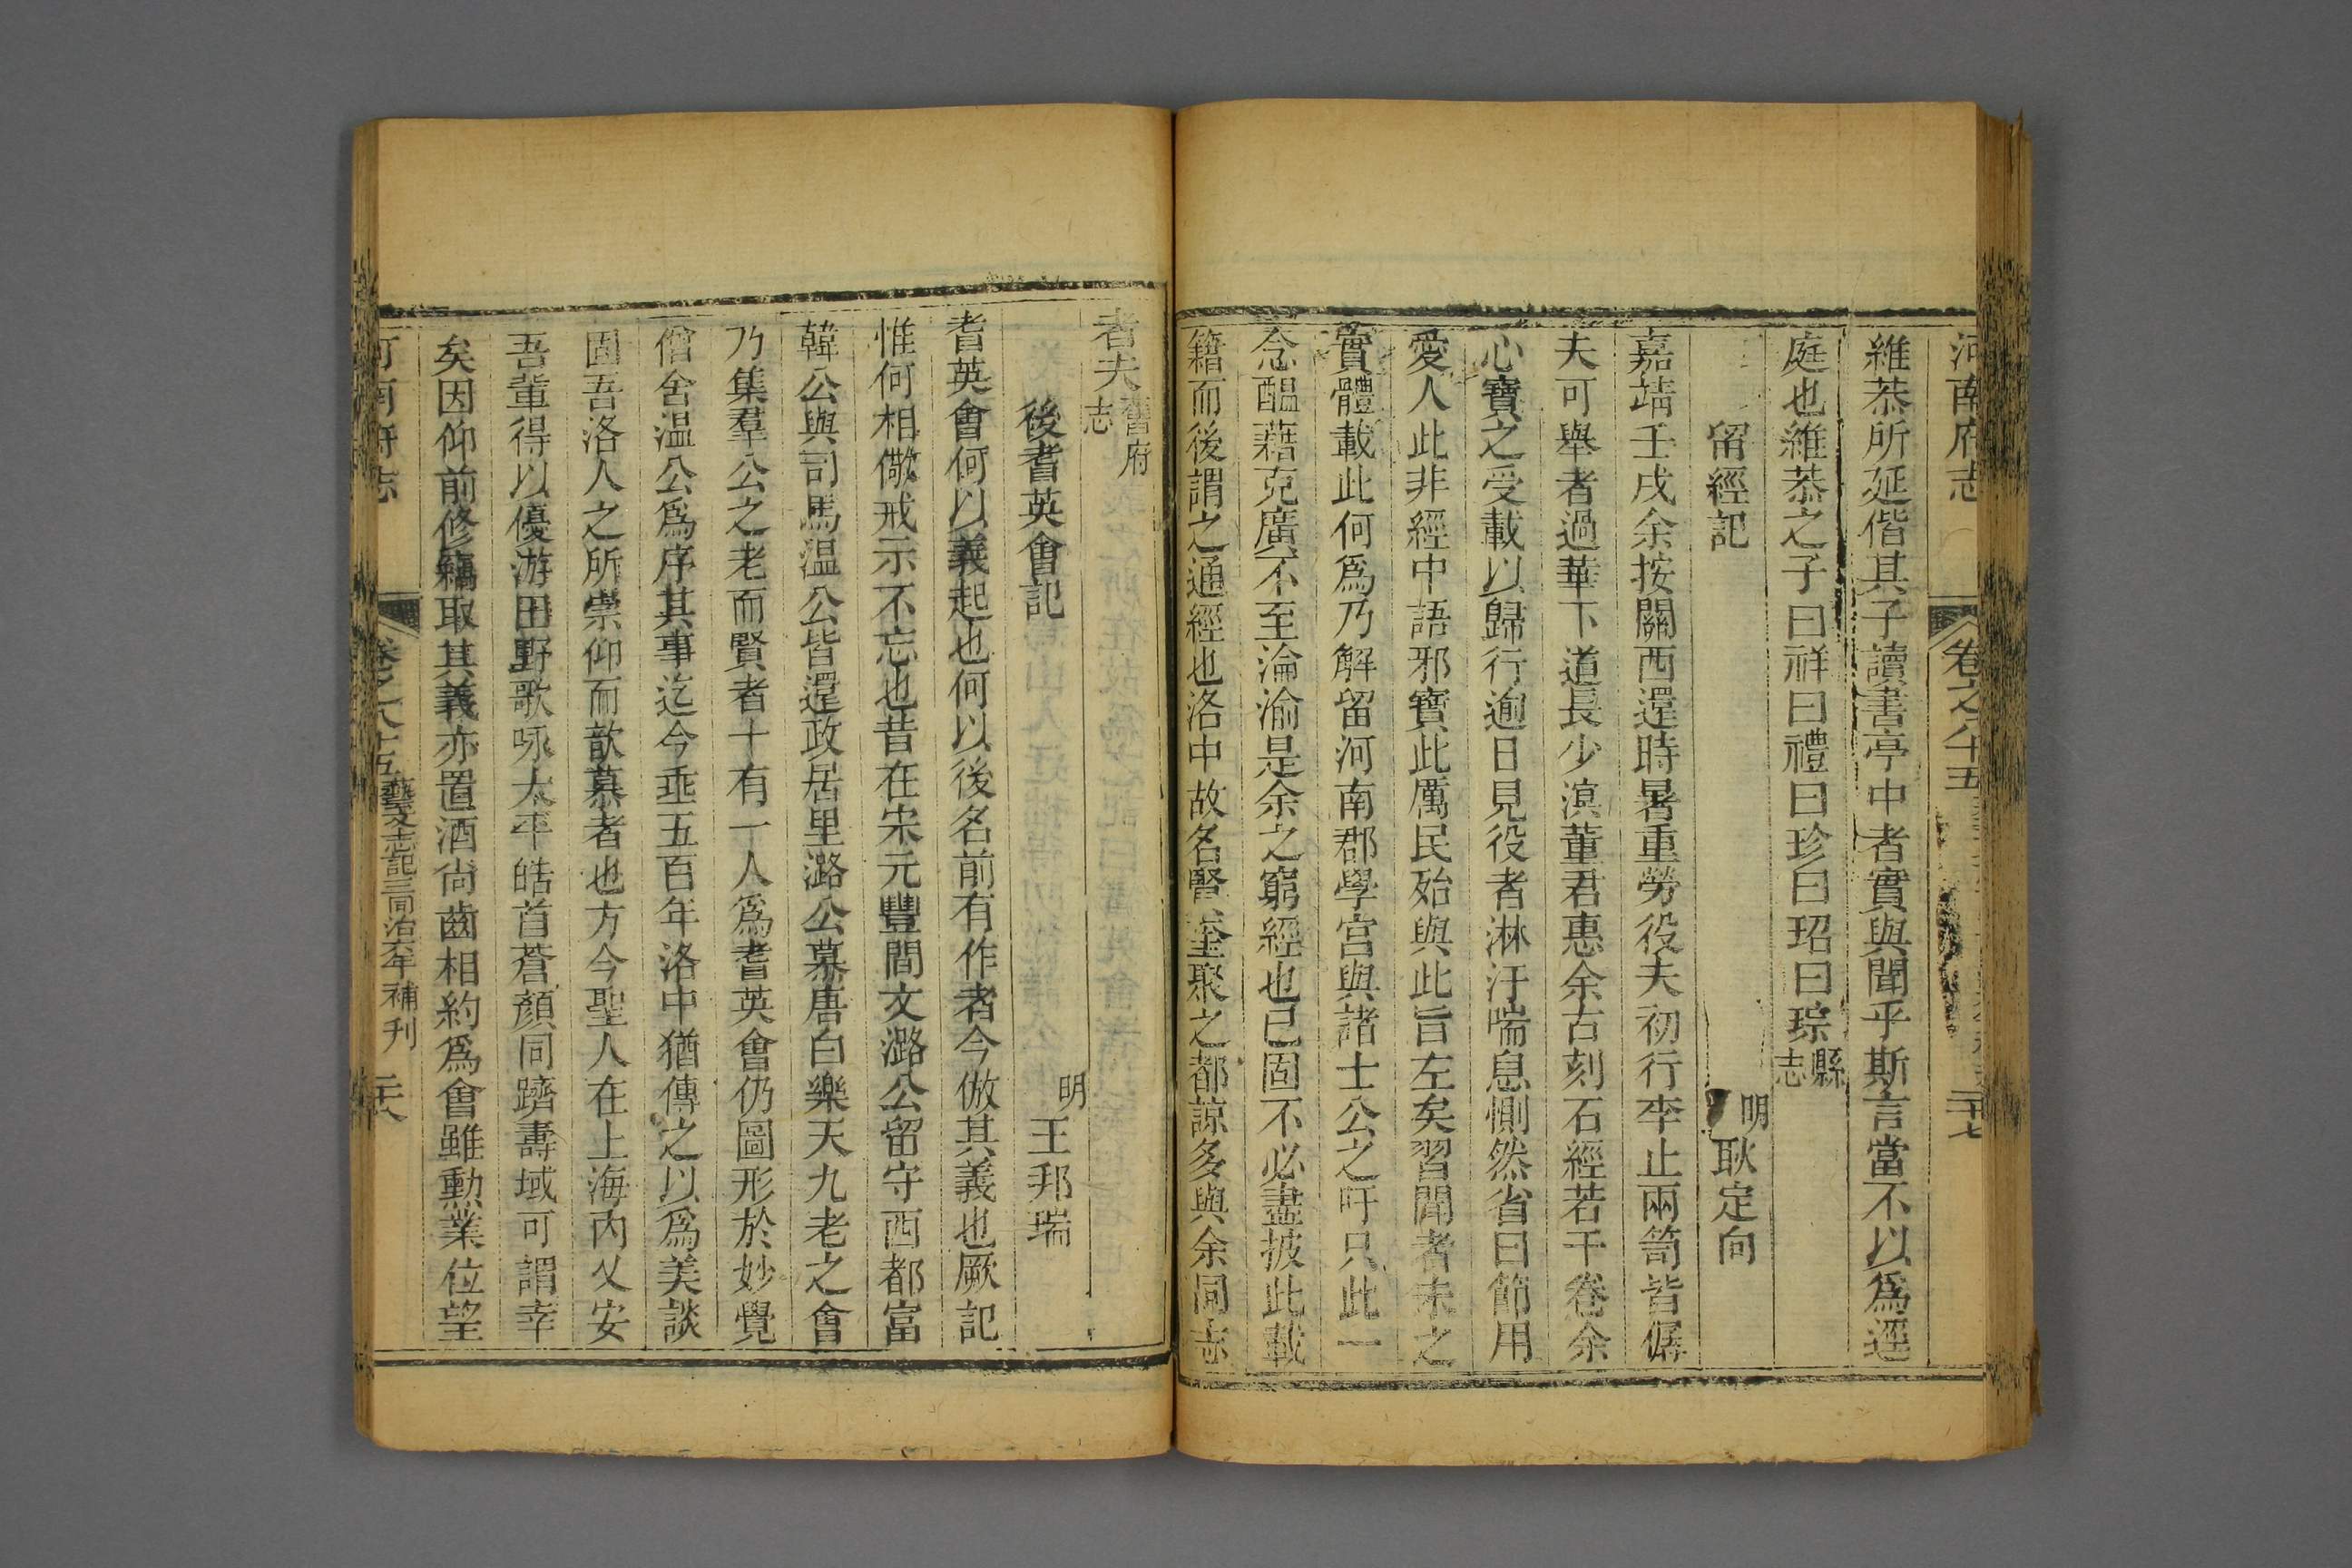 河南府志 卷之八十五 二十七
維恭所延偕其子讀書亭中者實與聞乎斯言當不以爲逕
庭也維恭之子曰祥曰禮曰珍曰玿曰琮縣志
留經記 明耿定向
嘉靖壬戌余按關西還時暑重勞役夫初行李止兩笥皆僝
夫可舉者過華下道長少濵董君惠余古刻石經若干卷余
心寶之受載以歸行逾日見役者淋汙喘息惻然省曰節用
愛人此非經中語邪寶此厲民殆與此旨左矣習聞者未之
實體載此何爲乃解留河南郡學宫與諸士公之吁只此一
念醖藉克廣不至淪渝是余之窮經也已固不必盡披此載
籍而後謂之通經也洛中故名賢 聚之都諒多與余同志
者夫舊府志
後耆英會記 明王邦瑞
耆英會何以義起也何以後名前有作者今倣其義也厥記
惟何相儆戒示不忘也昔在宋元豐間文潞公留守西都富
韓公與司馬温公皆還政居里潞公慕唐白樂天九老之會
乃集羣公之老而賢者十有一人爲耆英會仍圖形於妙覺
僧舍温公爲序其事迄今垂五百年洛中猶傳之以爲美談
固吾洛人之所崇仰而歆慕者也方今聖人在上海内乂安
吾輩得以優游田野歌咏太平皓首蒼顏同躋壽域可謂幸
矣因仰前修竊取其義亦置酒尚齒相約爲會雖勳業位望
河南府志 卷之八十五 藝文志記三同治六年補刊 二十八